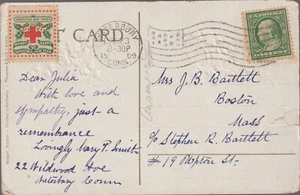 POST CARD
WATERBURY
8-30P
1909
CONN.
Dear Julia
With love and
sympathy, just a
remembrance
Lovingly Mary P. Smith
22 Wildwood Ave
Waterbury Conn
Mrs J. B. Bartlett
Boston
Mass
c/o Stephen R. Bartlett
#19 St.